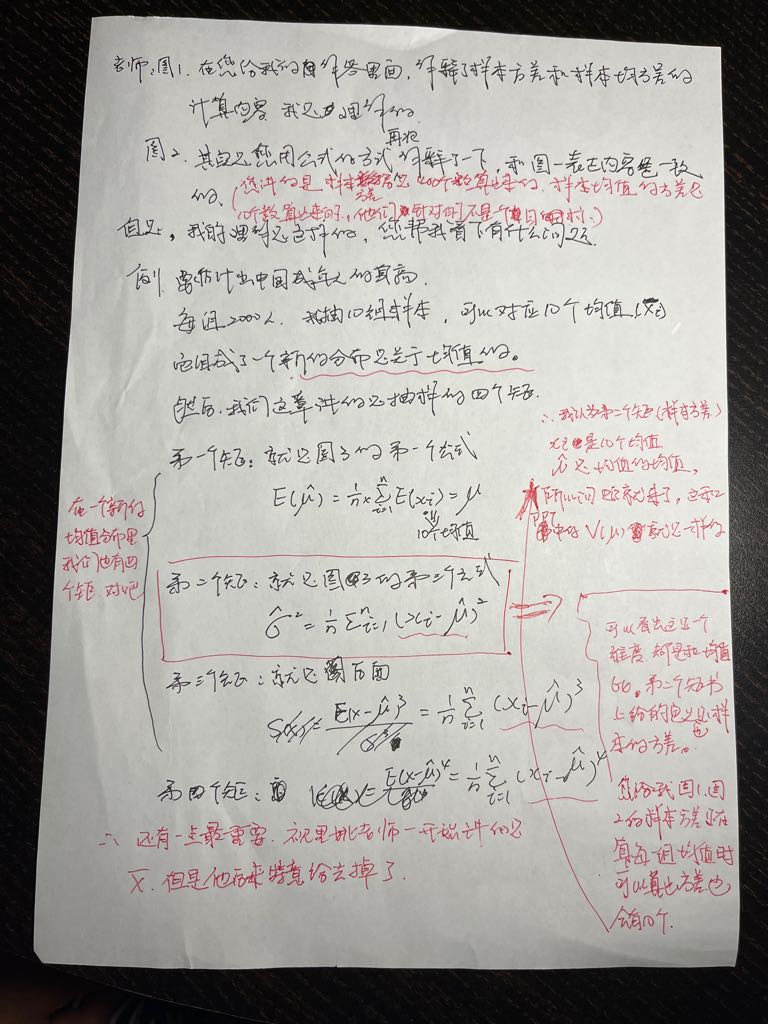 老师,图1.在您给我的解答里面,解释了样本方差和样本均值方差的
计算内容 我是理解的
图2.其自己您用公式的方式再次解释了一下,和图一表达内容是一致
的.(您讲的是样本方差是2000个数算出来的,样本均值的方差是
10个数算出来的,他们针对的不是一个目的.)
但是,我的理解是这样的,您帮我看下有什么问题.
例 要估计出中国成年人的身高.
每组2000人.我抽10组样本,可以对应10个均值(x̄i)
它组成了一个新的分布是关于均值的。
然后,我们这章讲的是抽样的四个矩.
第一个矩:就是图3的第一个公式
E(μ̂)=1/n×∑ⁿᵢ₌₁E(xi)=μ
10个均值
在一个新的
均值分布里
我们也有四
个矩 对吧
第二个矩:就是图3的第二个公式
σ̂²=1/n ∑ⁿᵢ₌₁(xi-μ̂)²
第三个矩:就是图后面
E(x-μ̂)³=1/n ∑ⁿᵢ₌₁(xi-μ̂)³
第四个矩:
E(x-μ̂)⁴=1/n ∑ⁿᵢ₌₁(xi-μ̂)⁴
还有一点最重要.视里老师一开始讲的是
x̄.但是他后来特意给去掉了.
∴我认为第二个矩(样本方差)
xi是10个均值
μ̂是均值的均值,
所以问题就来了,这和
中的V(μ)就是一样的
可以看出这是一个
维度 都是和均值
比。第二个矩书
上给的定义也是样
本的方差。
您给我图1.图
2的样本方差是在
算每组均值时
可以算出方差也
会有10个.